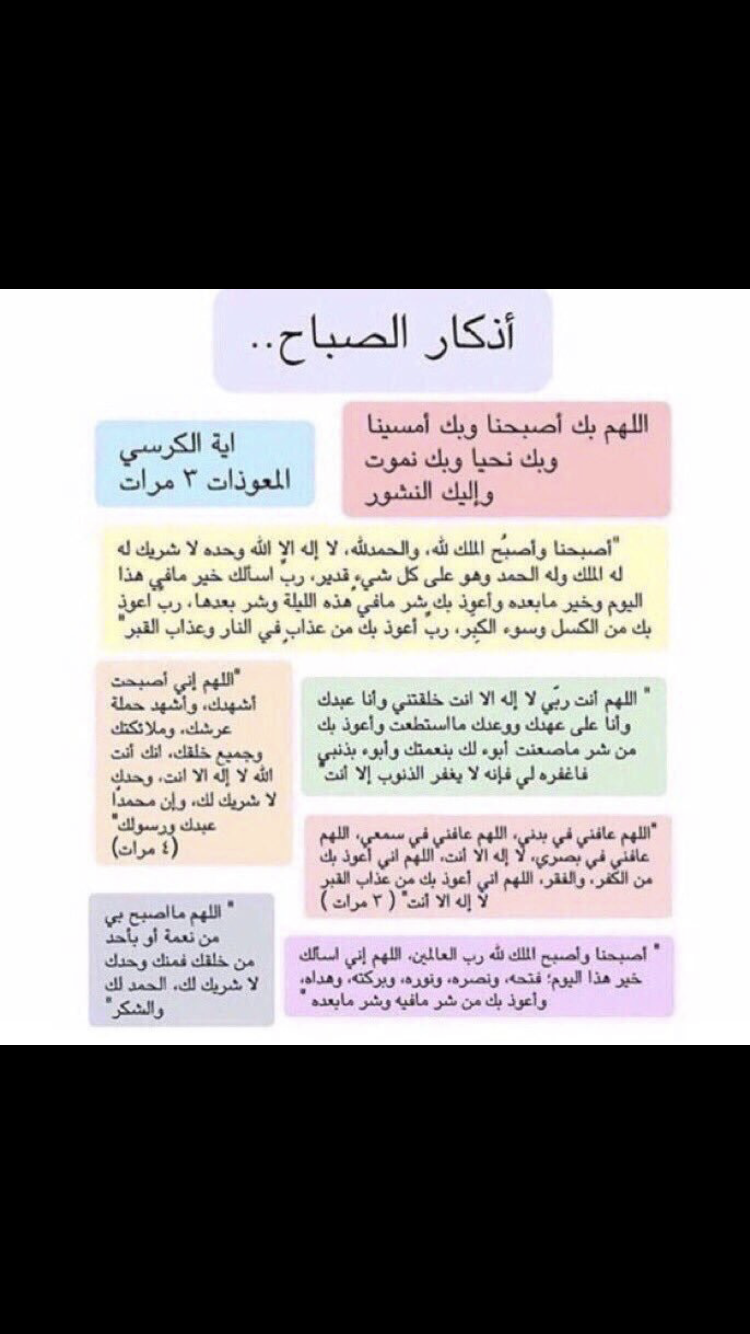 أذكار الصباح..
اللهم بك أصبحنا وبك أمسينا
وبك نحيا وبك نموت
وإليك النشور
اية الكرسي
المعوذات ٣ مرات
"أصبحنا وأصبُح الملك لله، والحمدلله، لا إله الا الله وحده لا شريك له
له الملك وله الحمد وهو على كل شيء قدير، ربِّ اسألك خير مافي هذا
اليوم وخير مابعده وأعوذ بك شر مافي هذه الليلة وشر بعدها، ربِّ اعوذ
بك من الكسل وسوء الكِبر، ربِّ أعوذ بك من عذابٍ في النار وعذاب القبر"
" اللهم أنت ربّي لا إله الا انت خلقتني وأنا عبدك
وأنا على عهدك ووعدك مااستطعت وأعوذ بك
من شر ماصعنت أبوء لك بنعمتك وأبوء بذنبي
فاغفره لي فإنه لا يغفر الذنوب إلا أنت"
"اللهم إني أصبحت
أشهدك، وأشهد حملة
عرشك، وملائكتك
وجميع خلقك، انك أنت
الله لا إله الا انت، وحدك
لا شريك لك، وإن محمداً
عبدك ورسولك"
(٤ مرات)
"اللهم عافني في بدني، اللهم عافني في سمعي، اللهم
عافني في بصري، لا إله الا أنت، اللهم اني أعوذ بك
من الكفر، والفقر، اللهم اني أعوذ بك من عذاب القبر
لا إله الا أنت" ( ٣ مرات )
" اللهم مااصبح بي
من نعمة أو بأحد
من خلقك فمنك وحدك
لا شريك لك، الحمد لك
والشكر"
" أصبحنا وأصبح الملك لله رب العالمين، اللهم إني اسألك
خير هذا اليوم؛ فتحه، ونصره، ونوره، وبركته، وهداه،
وأعوذ بك من شر مافيه وشر مابعده "